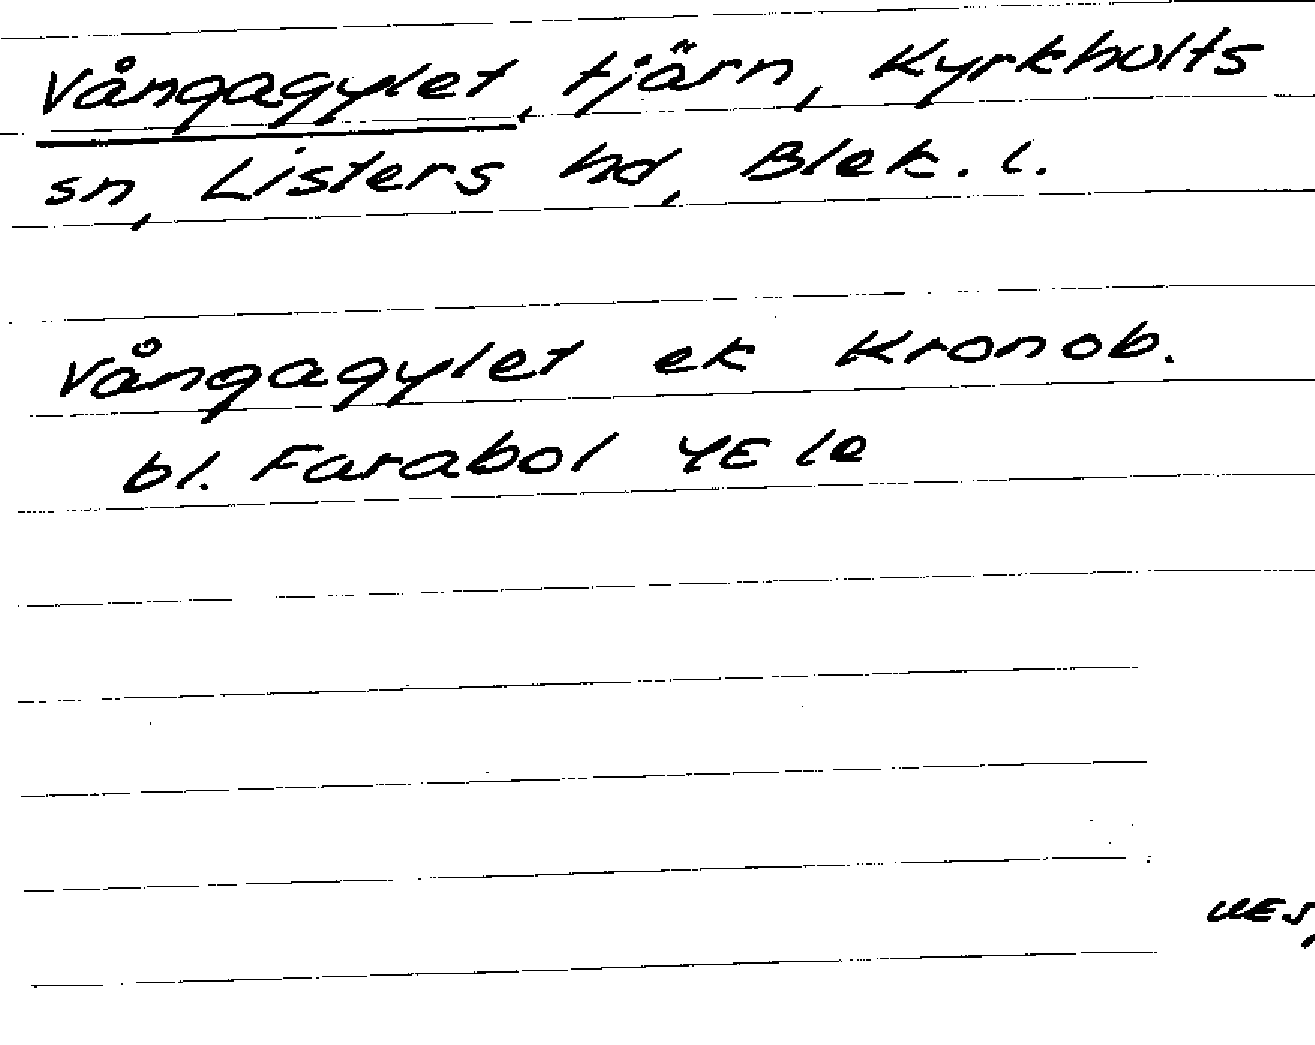 Vångagylet, tjärn, Kyrkhults
sn, Listers hd, Blek. l.
Vångagylet ek Kronob.
bl. Farabol 4E le